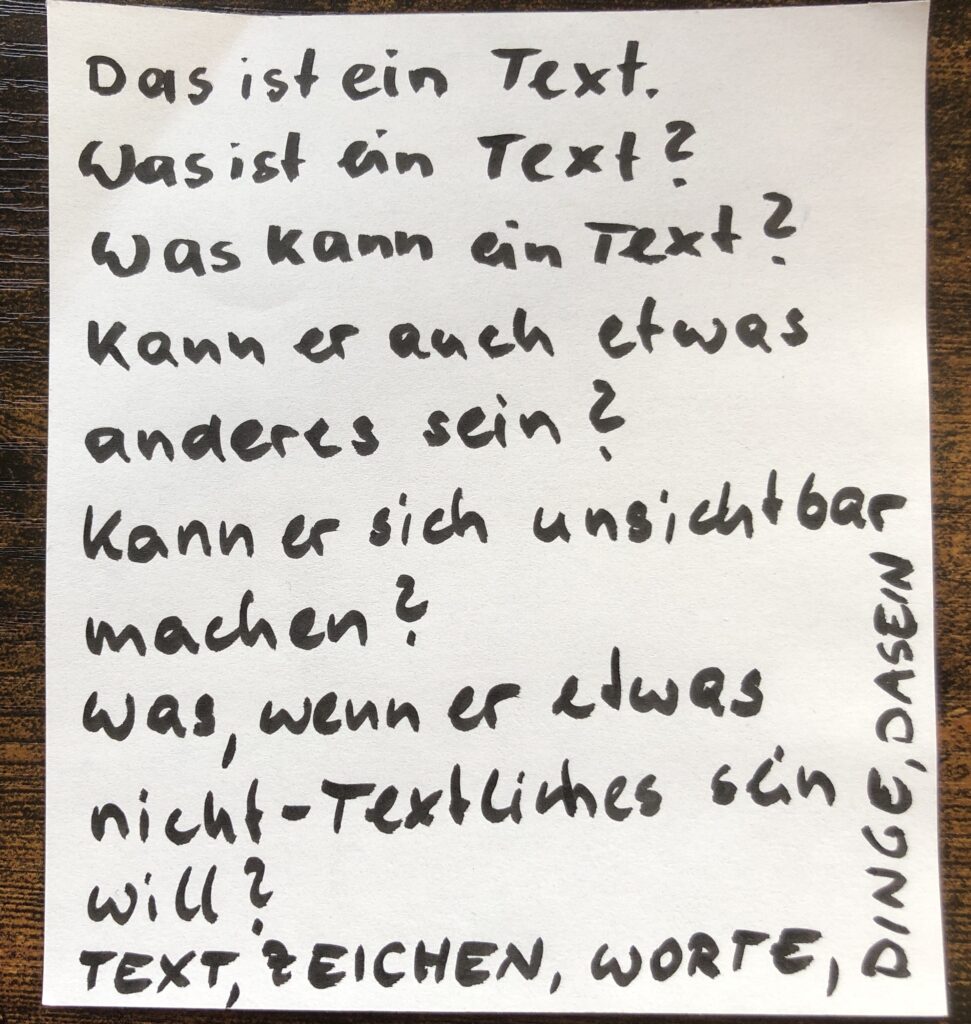 Das ist ein Text.
Was ist ein Text?
Was kann ein Text?
Kann er auch etwas
anderes sein?
Kann er sich unsichtbar
machen?
Was, wenn er etwas
nicht-Textliches sein
will?
TEXT, ZEICHEN, WORTE,
DINGE, DASEIN